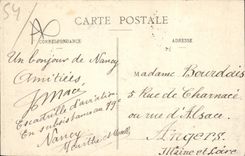 54
CARTE POSTALE
CORRESPONDANCE
ADRESSE
Un bonjour de Nancy
Amitiés
J Macé
Escadrille d'aviation
En subsistance au 79e
Nancy
Meurthe et Moselle
Madame Bourdais
5 Rue de Charnacé
ou rue d'Alsace
Angers
Maine et Loire